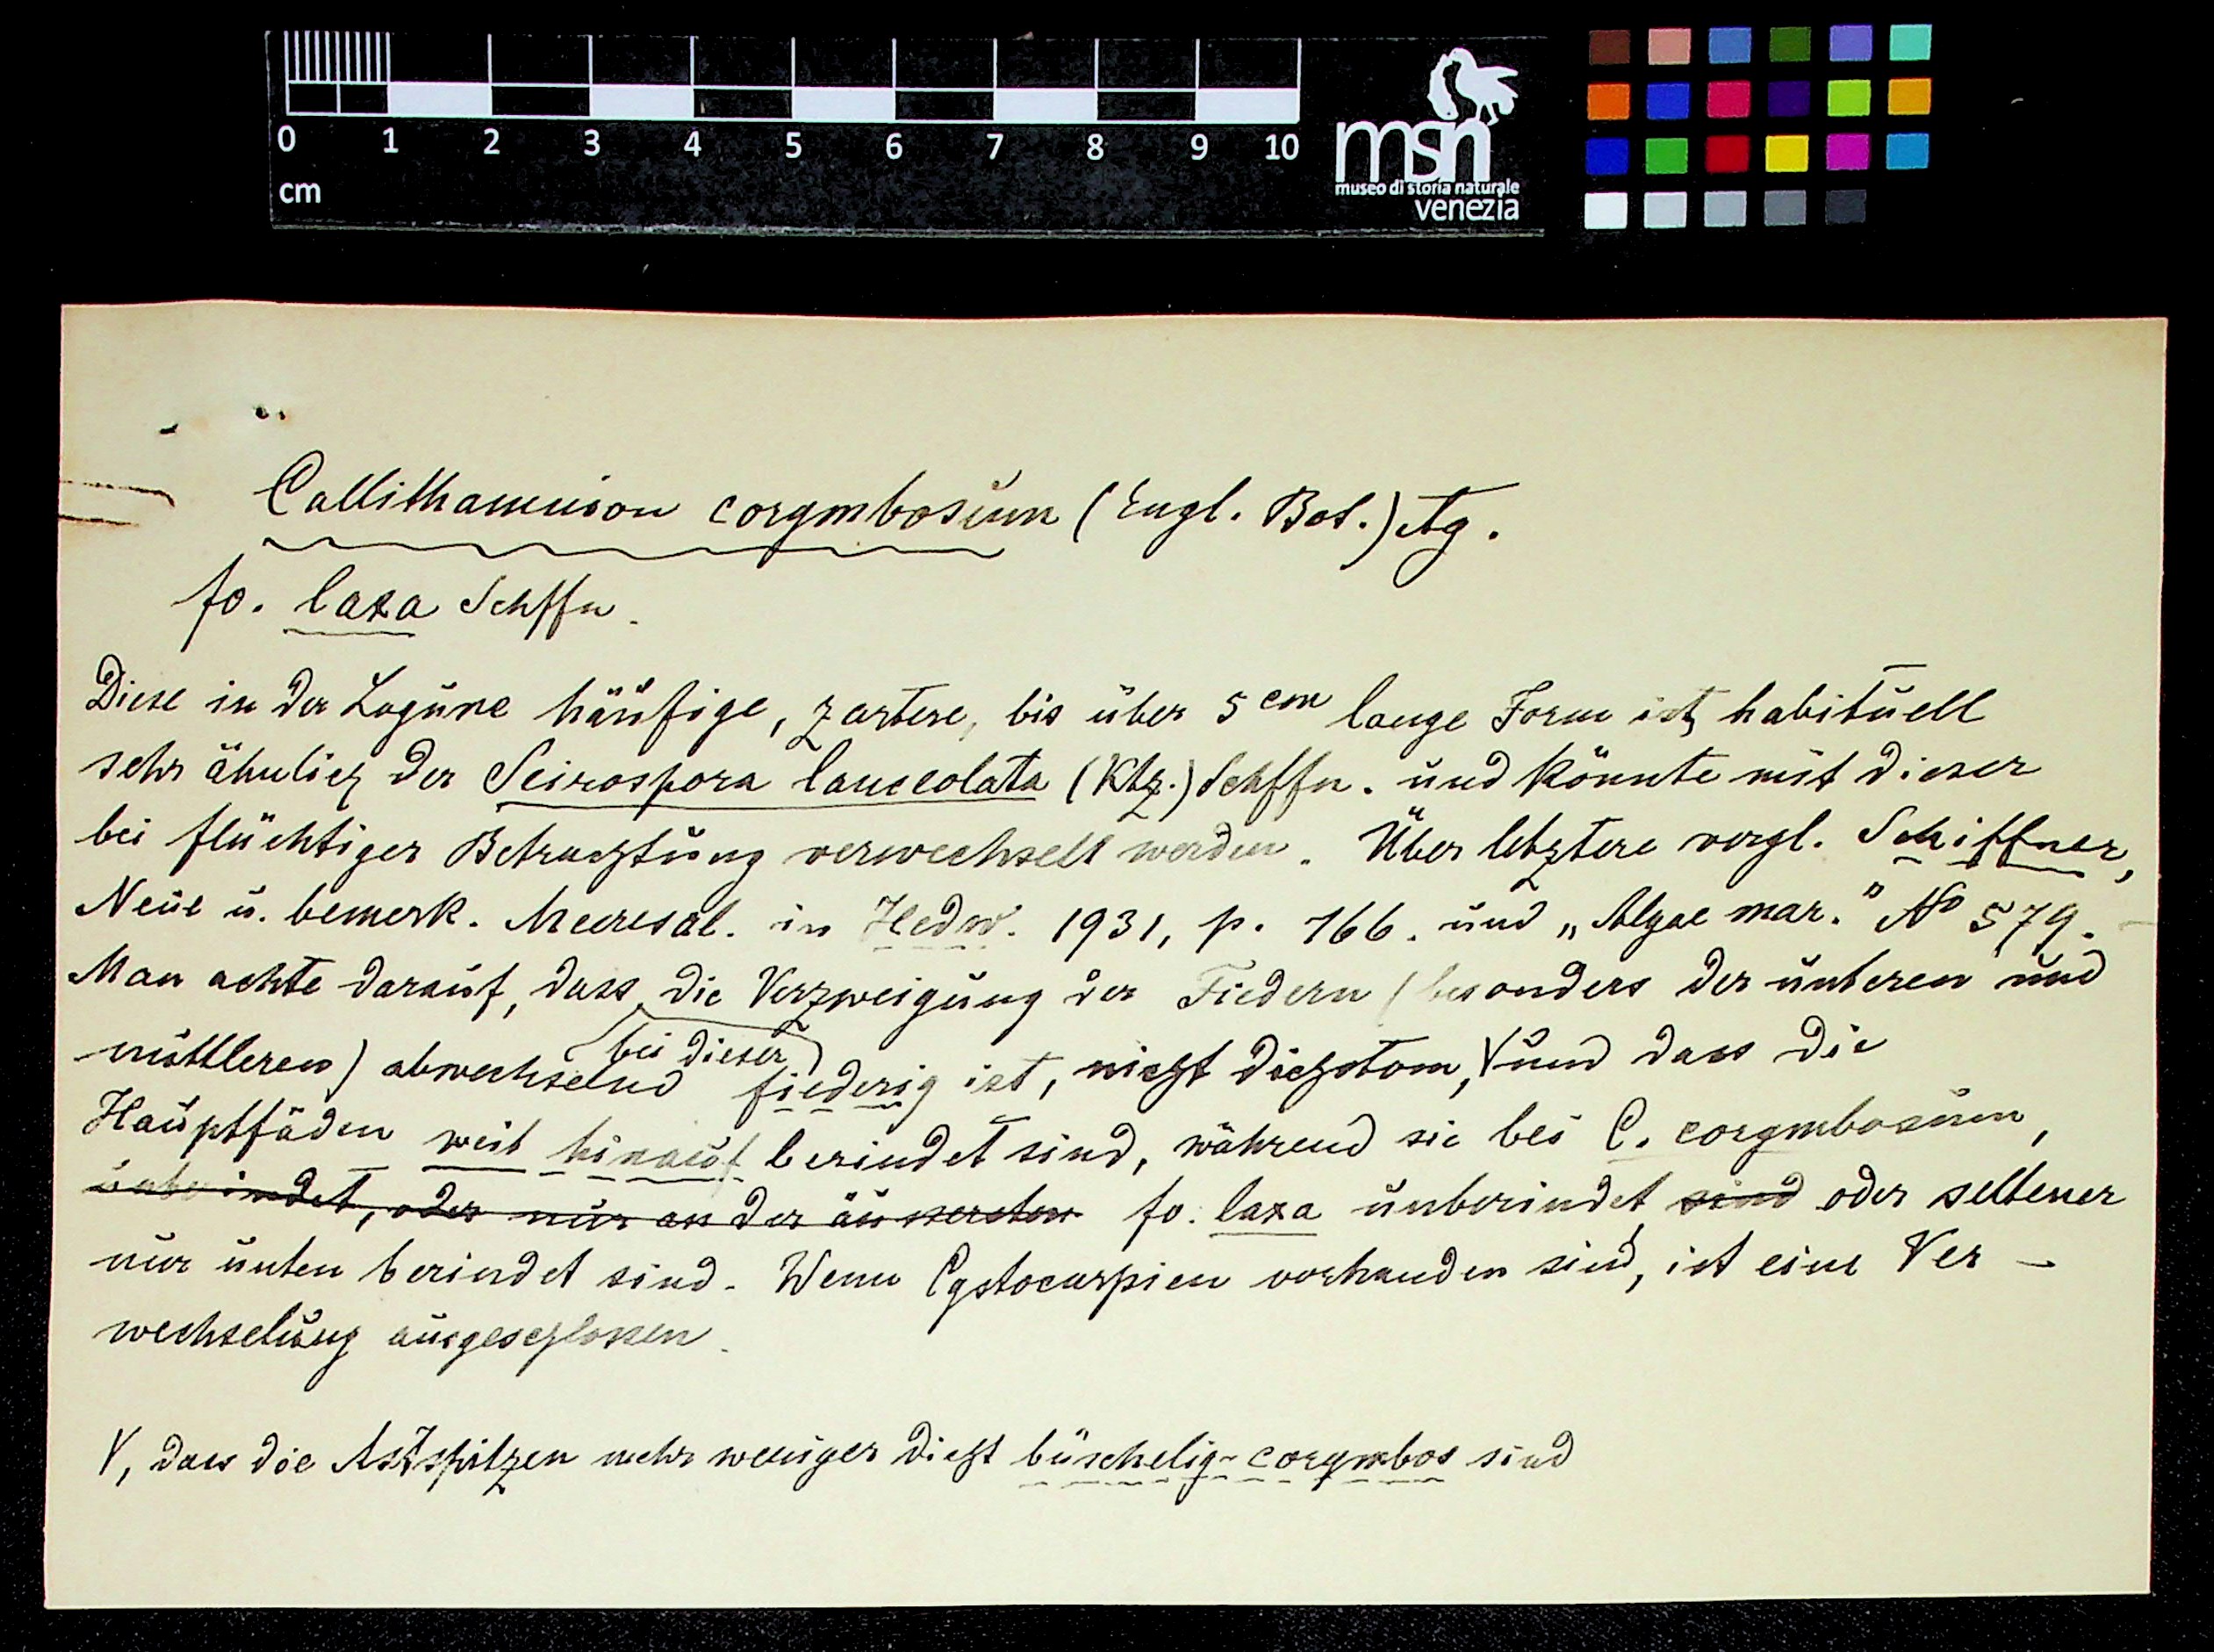 0 1 2 3 4 5 6 7 8 9 10
cm
msn
museo di storia naturale
venezia
Callithamnion corymbosum (Engl. Bot.) Ag.
fo. laxa Schffn.
Diese in der Lagune häufige, zartere, bis über 5 cm lange Form ist habituell
sehr ähnlich der Seirospora lanceolata (Ktz.) Schffn. und könnte mit dieser
bei flüchtiger Betrachtung verwechselt werden. Über letztere vergl. Schiffner,
Neue u. bemerk. Meeresal. in Hedw. 1931, p. 166. und „Algae mar." No 579.
Man achte darauf, dass die Verzweigung der Fiedern (besonders der unteren und
bei dieser
mittleren) abwechselnd fiederig ist, nicht dichotom, V und dass die
Hauptfäden weit hinauf berindet sind, während sie bei C. corymbosum,
unberindet, oder nur an der äussersten fo. laxa unberindet sind oder seltener
nur unten berindet sind. Wenn Cystocarpien vorhanden sind, ist eine Ver-
wechselung ausgeschlossen.
V, dass die Astspitzen mehr weniger dicht büschelig-corymbos sind